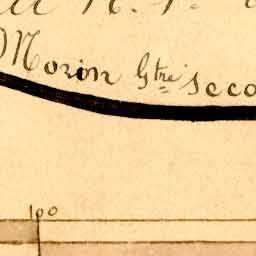 Morin Gtre seco
100